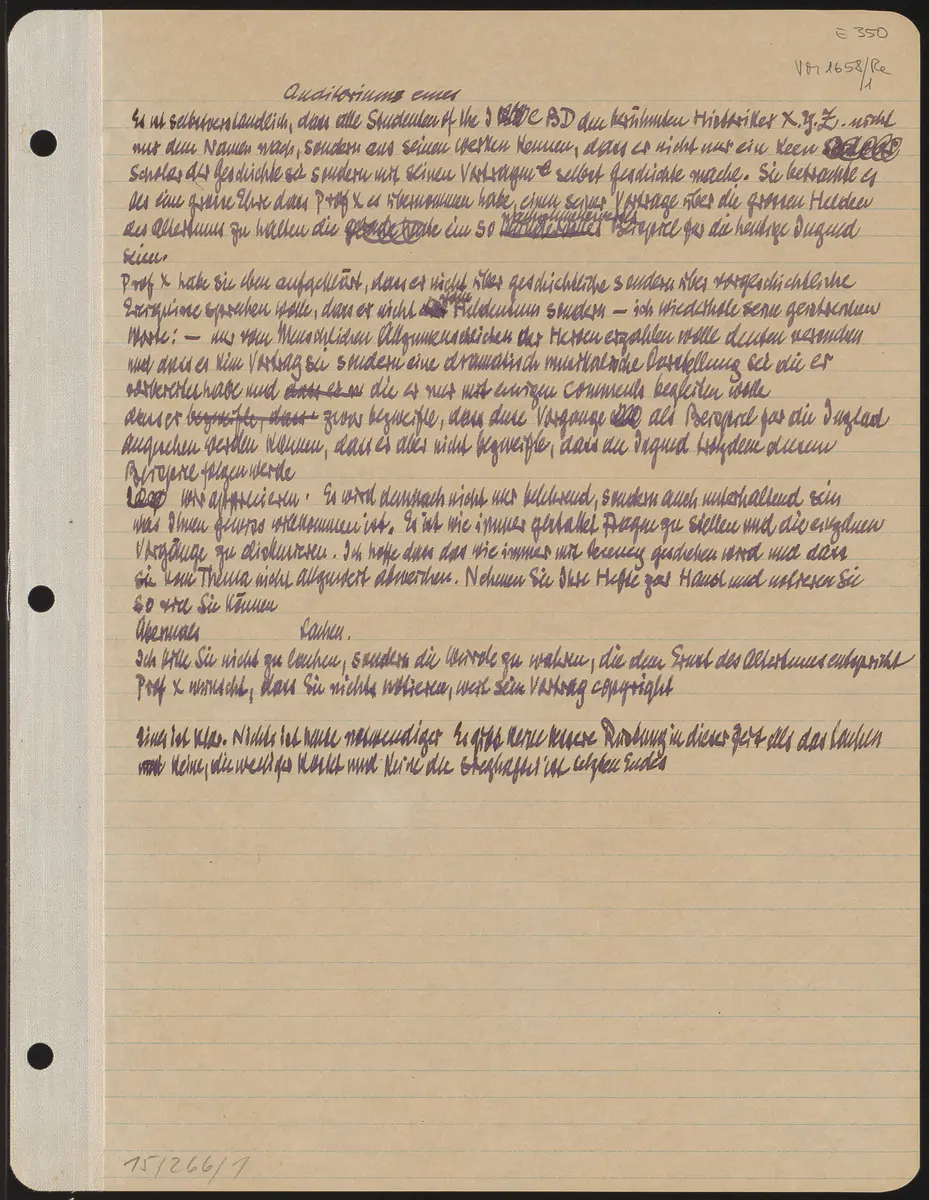 E 350
Vor 1658/Re
1
Auditoriums eines
Es ist selbstverständlich, dass alle Studenten of the I C BD den berühmten Historiker X.Y.Z. nicht
nur dem Namen nach, sondern aus seinen Werken kennen, dass er nicht nur ein keen
Scholar der Geschichte sei sondern mit seinen Vorträgen selbst Geschichte mache. Sie betrachte es
als eine grosse Ehre dass Prof X es übernommen habe, einen seiner Vorträge über die grossen Helden
des Altertums zu halten die ein so nachahmenswertes Beispiel für die heutige Jugend
seien.
Prof X habe sie eben aufgeklärt, dass er nicht über geschichtliche sondern über vorgeschichtliche
Ereignisse sprechen wolle, dass er nicht vom Heldentum sondern – ich wiederhole seine gesprochenen
Worte: – nur vom Menschlichen Allzumenschlichen der Heroen erzählen wolle
und dass es kein Vortrag sei sondern eine dramatisch musikalische Darstellung sei die er
vorbereitet habe und dass er die er nur mit einigen comments begleiten wolle
dass er bezweifle, dass zwar bezweifle, dass diese Vorgänge als Beispiel für die Jugend
angesehen werden können, dass er aber nicht bezweifle, dass die Jugend trotzdem diesem
Beispiel folgen werde
wir Es wird demnach nicht nur belehrend, sondern auch unterhaltend sein
was Ihnen gewiss willkommen ist. Es ist wie immer gestattet Fragen zu stellen und die einzelnen
Vorgänge zu diskutieren. Ich hoffe dass das wie immer mit decency geschehen wird und dass
Sie vom Thema nicht allzuweit abweichen. Nehmen Sie Ihre Hefte zur Hand und notieren Sie
so viel Sie können
Abermals Lachen.
Ich bitte Sie nicht zu lachen, sondern die Würde zu wahren, die dem Ernst des Altertums entspricht
Prof X wünscht, dass Sie nichts notieren, weil sein Vortrag copyright
Eines ist klar. Nichts ist heute notwendiger Es gibt keine bessere Rüstung in dieser Zeit als das Lachen
und keine, die weniger kostet und keine die sieghafter ist letzten Endes
15/266/1